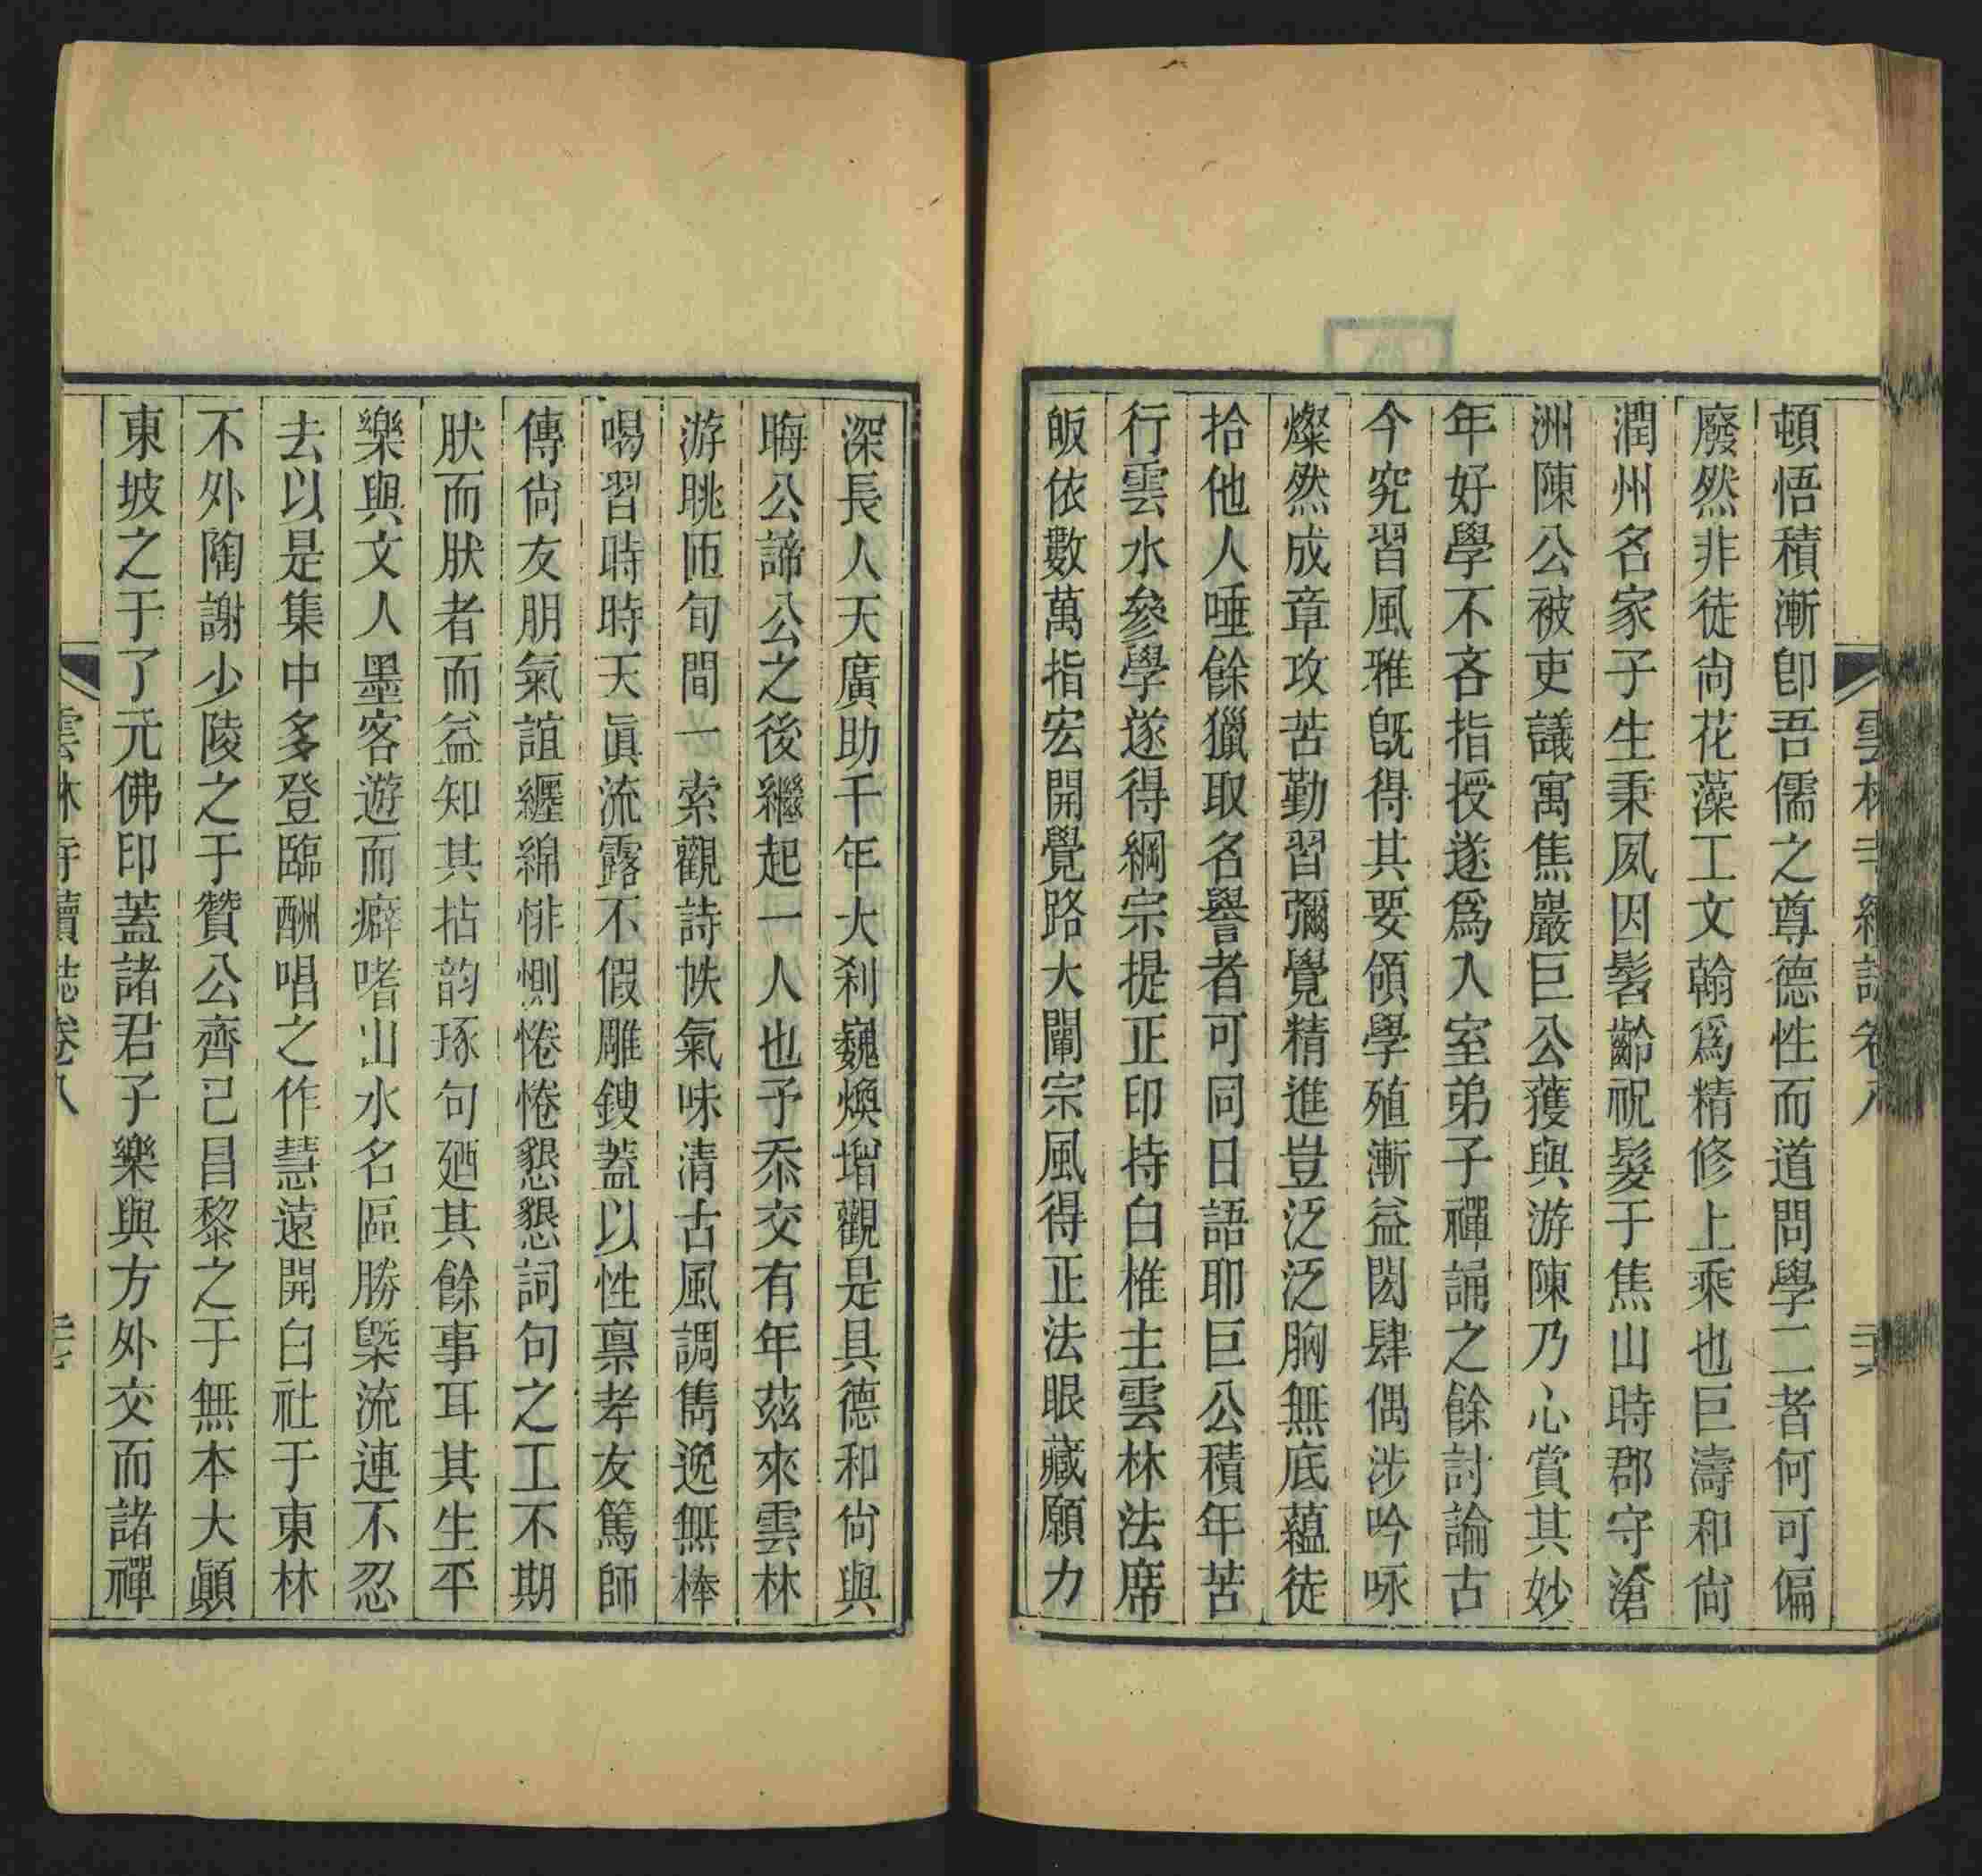 頓悟積漸卽吾儒之尊德性而道問學二者何可偏
廢然非徒尙花藻工文翰爲精修上乘也巨濤和尙
潤州名家子生秉夙因髫齡祝髮于焦山時郡守滄
洲陳公被吏議寓焦巖巨公獲與游陳乃心賞其妙
年好學不吝指授遂爲入室弟子禪誦之餘討論古
今究習風雅旣得其要領學殖漸益閎肆偶涉吟咏
燦然成章攻苦勤習彌覺精進豈泛泛胸無底蘊徒
拾他人唾餘獵取名譽者可同日語耶巨公積年苦
行雲水參學遂得綱宗提正印持白椎主雲林法席
皈依數萬指宏開覺路大闡宗風得正法眼藏願力
深長人天廣助千年大刹巍煥增觀是具德和尙與
晦公諦公之後繼起一人也予忝交有年茲來雲林
游眺匝旬間一索觀詩帙氣味清古風調雋逸無棒
喝習時時天眞流露不假雕鎪蓋以性禀孝友篤師
傳尙友朋氣誼纏綿悱惻惓惓懇懇詞句之工不期
肰而肰者而益知其拈韵琢句廼其餘事耳其生平
樂與文人墨客遊而癖嗜山水名區勝槩流連不忍
去以是集中多登臨酬唱之作慧遠開白社于東林
不外陶謝少陵之于贊公齊己昌黎之于無本大顚
東坡之于了元佛印蓋諸君子樂與方外交而諸禪
雲林寺續誌卷八